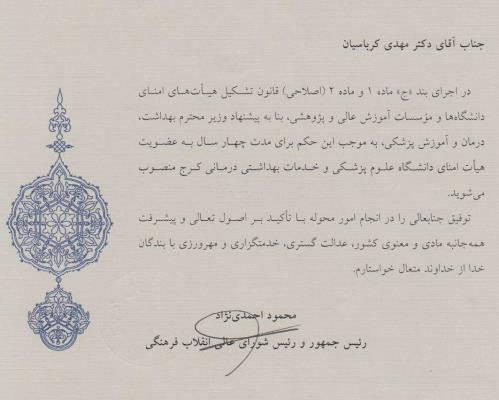 جناب آقای دکتر مهدی کرباسیان
در اجرای بند «ج» ماده ۱ و ماده ۲ (اصلاحی) قانون تشکیل هیأت‌های امنای
دانشگاه‌ها و مؤسسات آموزش عالی و پژوهشی، بنا به پیشنهاد وزیر محترم بهداشت،
درمان و آموزش پزشکی، به موجب این حکم برای مدت چهار سال به عضویت
هیأت امنای دانشگاه علوم پزشکی و خدمات بهداشتی درمانی کرج منصوب
می‌شوید.
توفیق جنابعالی را در انجام امور محوله با تأکید بر اصول تعالی و پیشرفت
همه‌جانبه مادی و معنوی کشور، عدالت گستری، خدمتگزاری و مهرورزی با بندگان
خدا از خداوند متعال خواستارم.
محمود احمدی‌نژاد
رئیس جمهور و رئیس شورای عالی انقلاب فرهنگی